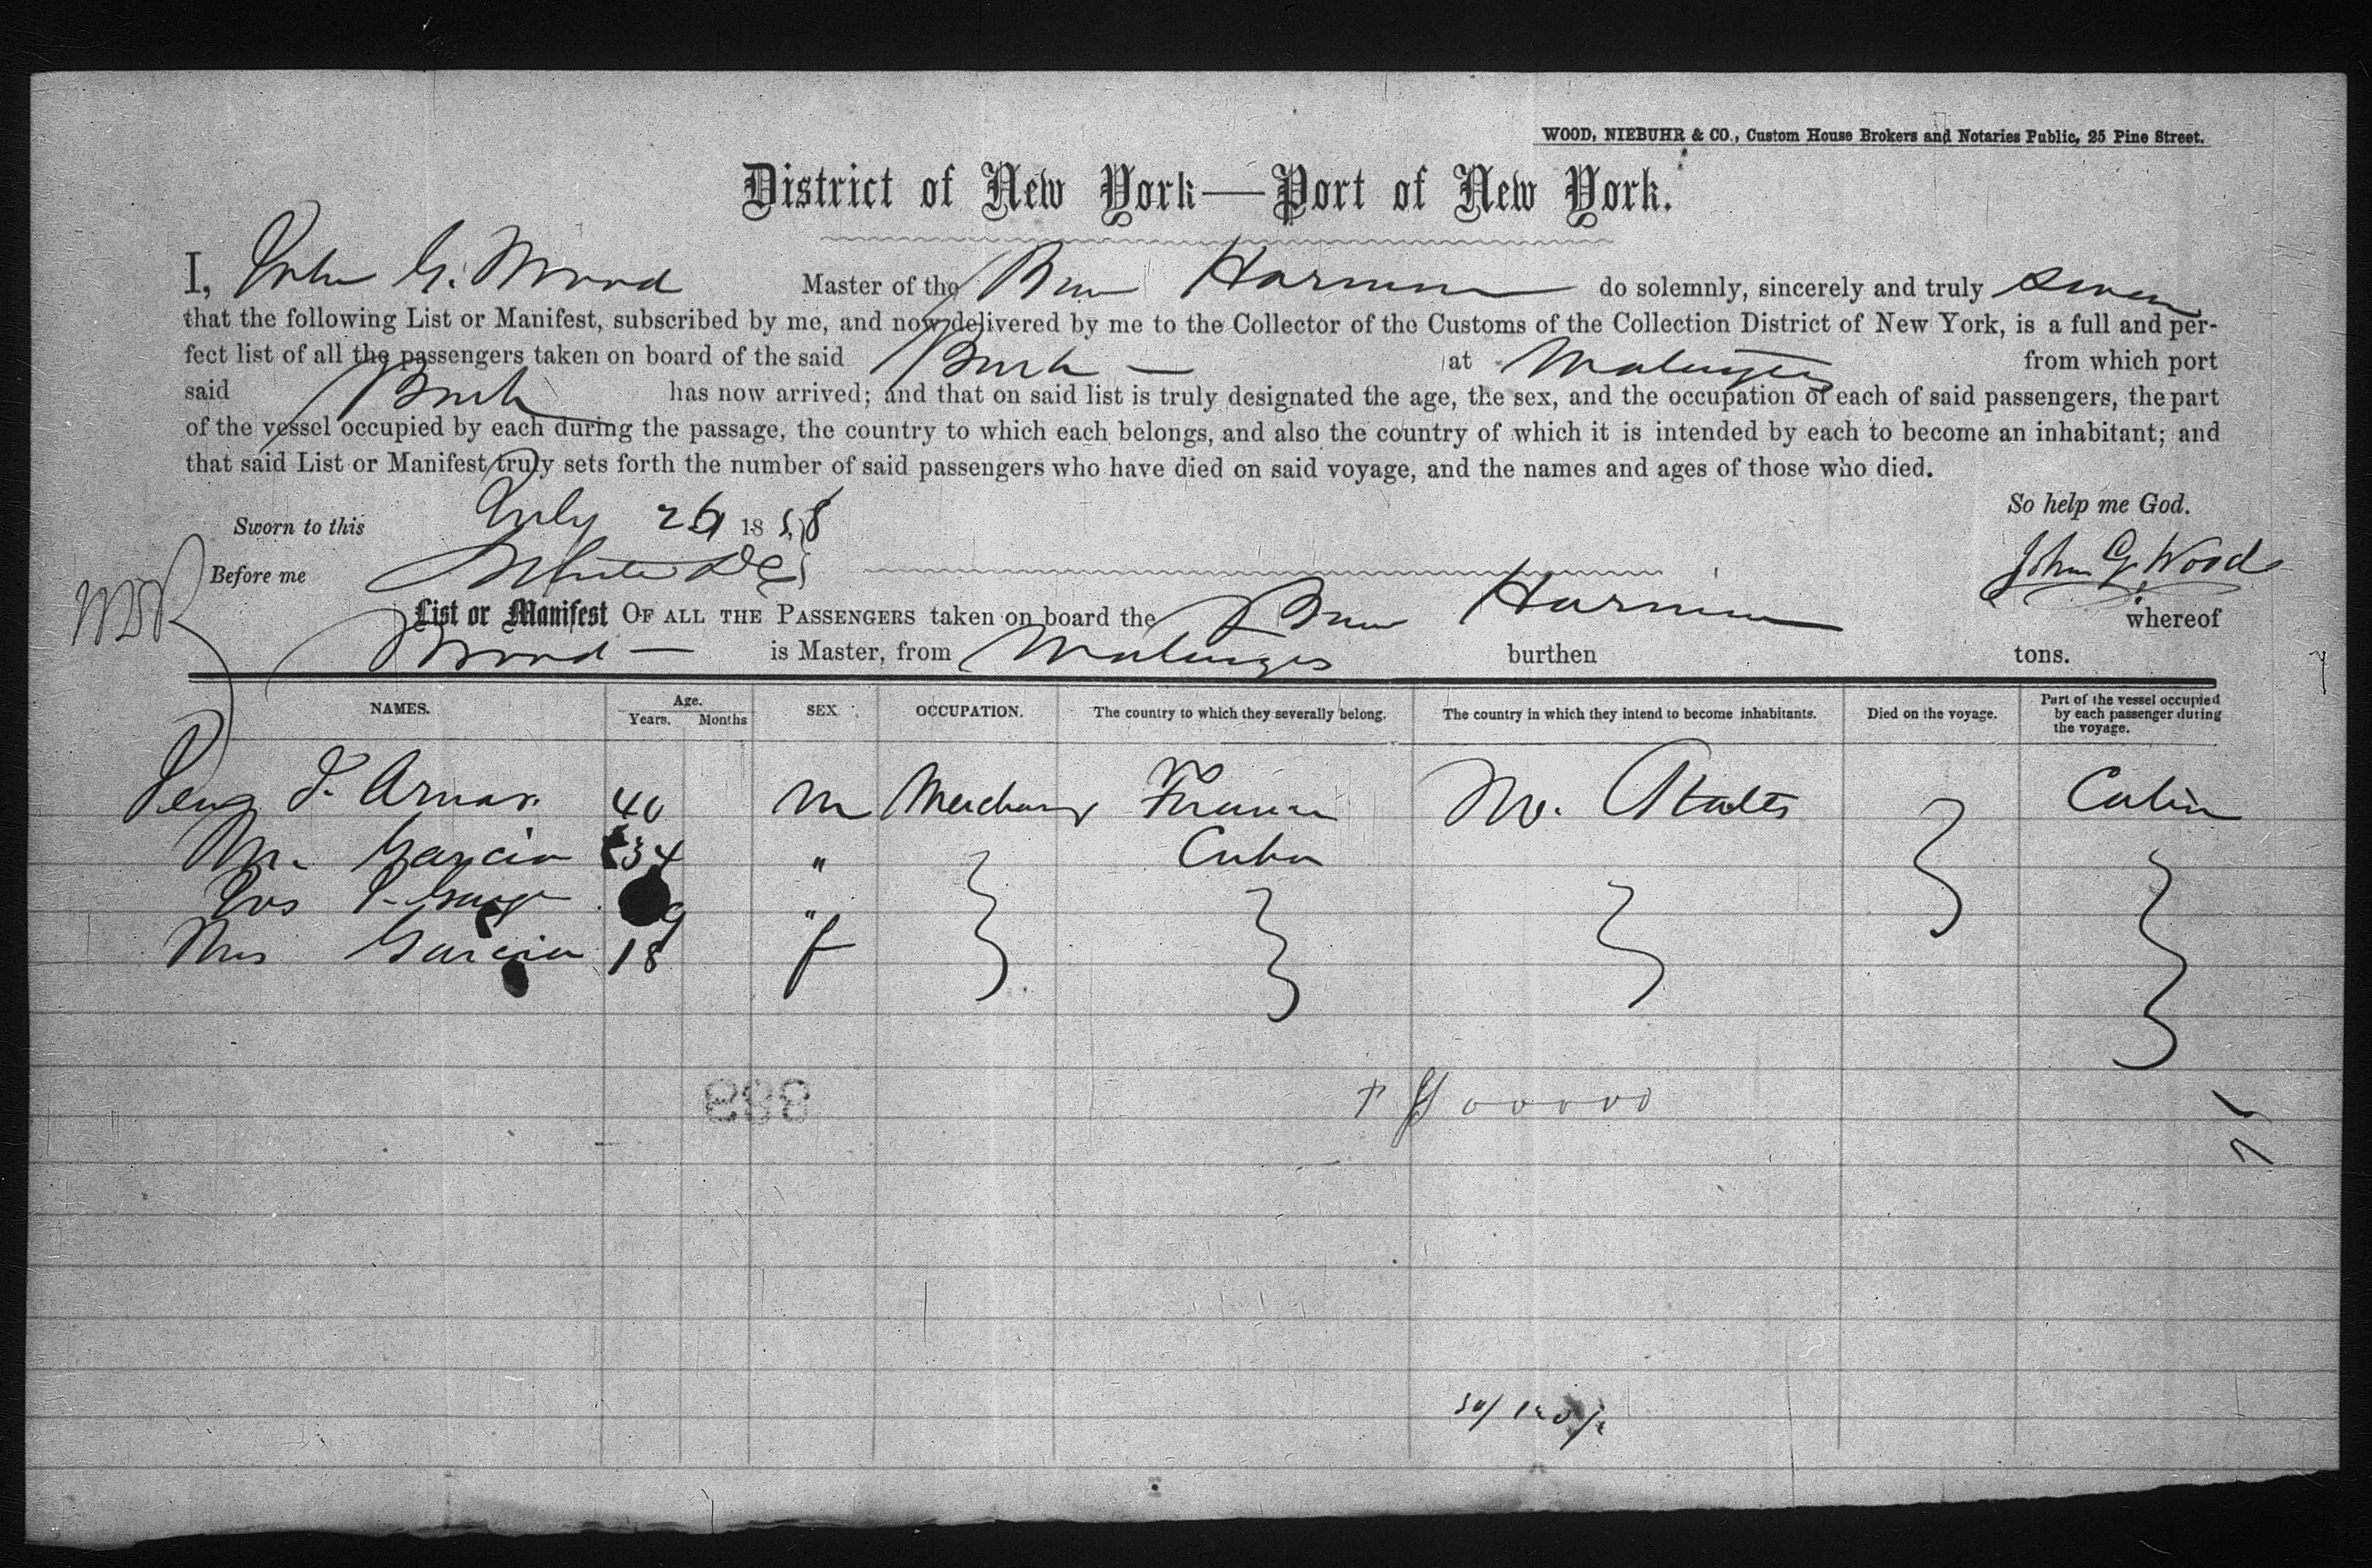 WOOD, NIEBUHR & CO., Custom House Brokers and Notaries Public, 25 Pine Street.
District of New York—Port of New York.
I, John G. Wood Master of the Harmon do solemnly, sincerely and truly swear
that the following List or Manifest, subscribed by me, and now delivered by me to the Collector of the Customs of the Collection District of New York, is a full and per-
fect list of all the passengers taken on board of the said Bark at from which port
said Bark has now arrived; and that on said list is truly designated the age, the sex, and the occupation of each of said passengers, the part
of the vessel occupied by each during the passage, the country to which each belongs, and also the country of which it is intended by each to become an inhabitant; and
that said List or Manifest truly sets forth the number of said passengers who have died on said voyage, and the names and ages of those who died.
So help me God.
Sworn to this July 26 1858
John G. Wood
Before me
List or Manifest OF ALL THE PASSENGERS taken on board the Harmon whereof
Wood is Master, from burthen tons.
NAMES. Age. Years. Months SEX OCCUPATION. The country to which they severally belong. The country in which they intend to become inhabitants. Died on the voyage. Part of the vessel occupied by each passenger during the voyage.
40 M Merchant France States Cabin
Mr. Garcia 34 " Cuba
"
Mrs Garcia 18 f